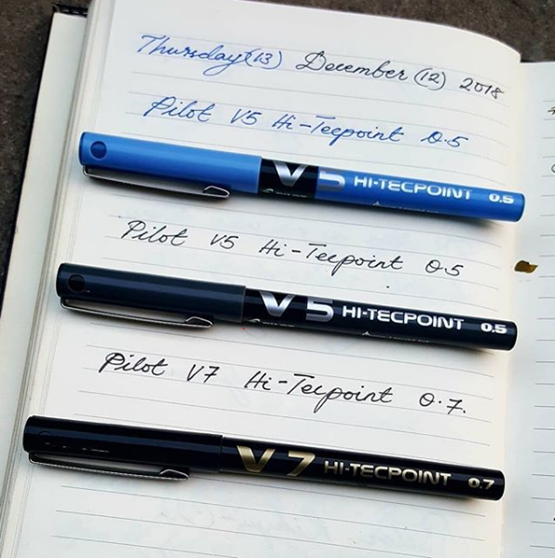 Thursday(13) December (12) 2018
Pilot V5 Hi-Tecpoint 0.5
V5 HI-TECPOINT 0.5
Pilot V5 Hi-Tecpoint 0.5
V5 HI-TECPOINT 0.5
Pilot V7 Hi-Tecpoint 0.7.
V7 HI-TECPOINT 0.7